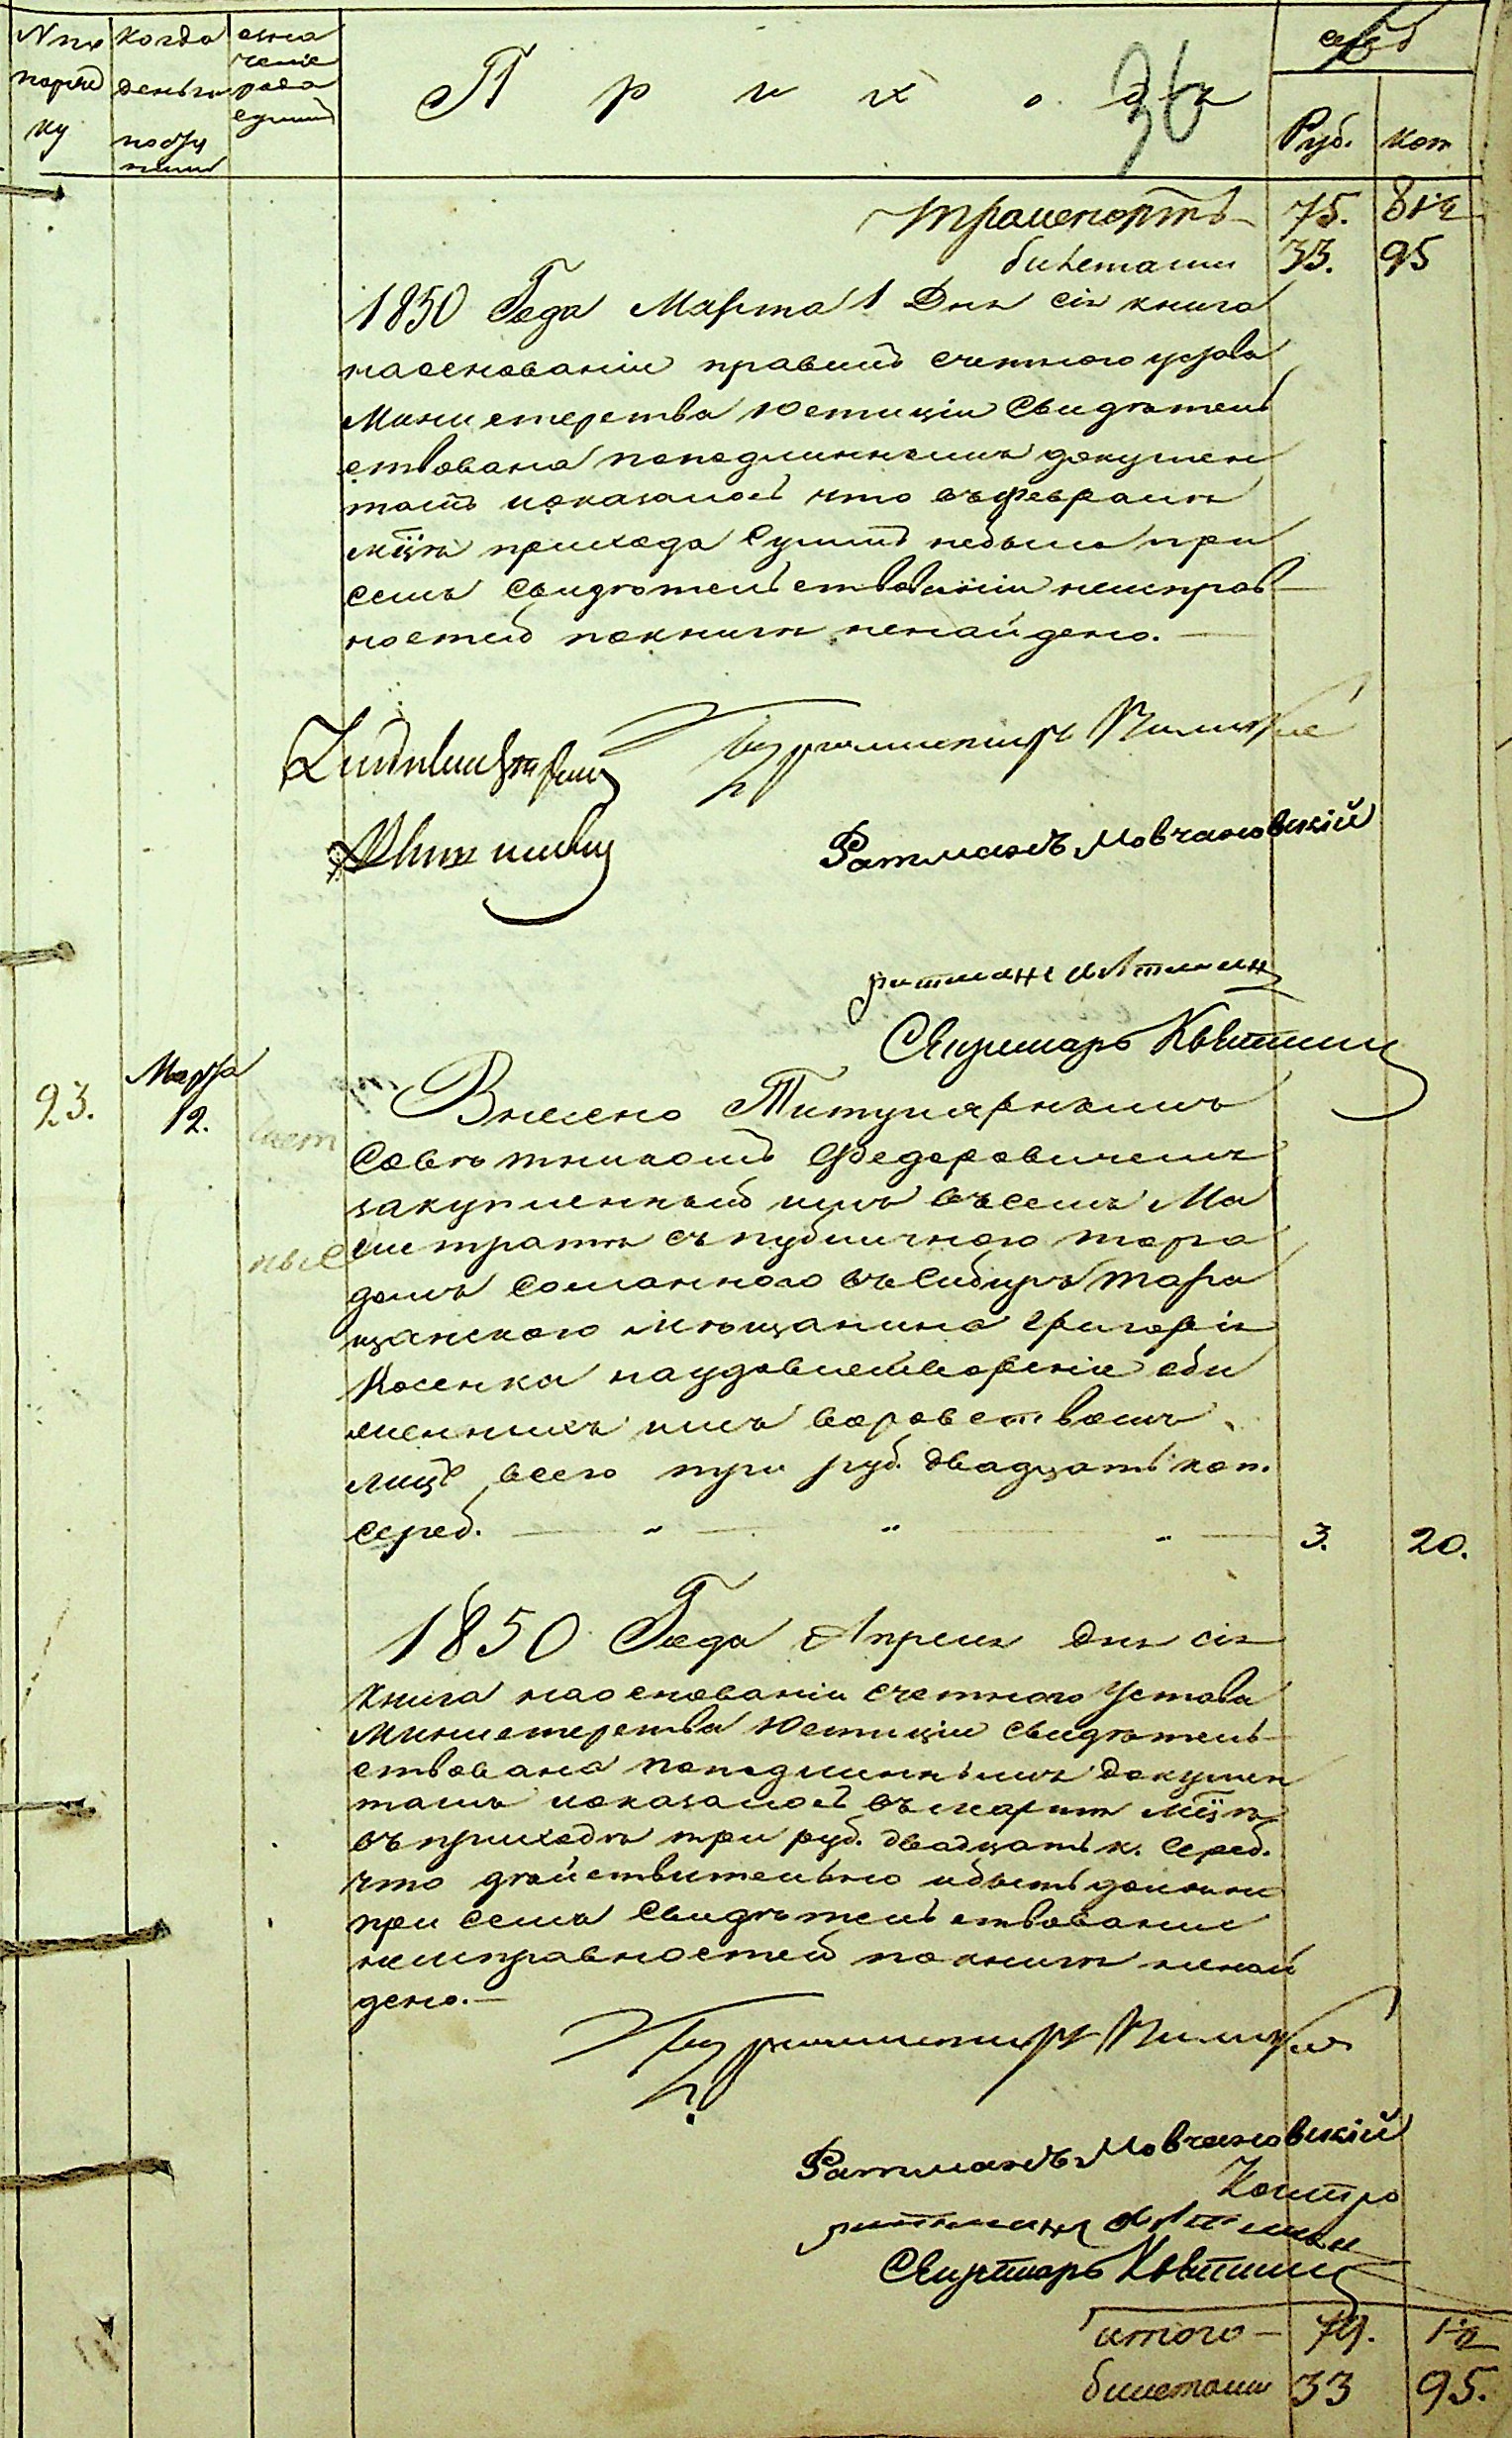 № по когда озна
чение
порядк деньги рода
сумм
ку посту
пили
П р и х о дъ
36
сереб
Руб. коп
транспортъ 75. 81½
билетами 33. 95
1850 Года Марта 1 Дня сія книга
наоснованіи правилъ счетного устава
Министерства Юстиціи Свидѣтель
ствована поподлиннымъ докумен
тамъ иоказалось что въ февралѣ
мцѣ прихода Суммъ небыло при
семъ свидѣтельствованіи неисправ
ностей покнигѣ ненайдено.
Бургомистръ
Ратманъ Мовчановскій
ратманъ
Секретарь Квитницкій
23. Марта
12.
Внесено Титулярнымъ
Совѣтникомъ Федоровичемъ
закупленный имъ въсемъ Ма
гистратѣ съ публичного торга
домъ сосланного въ Сибирь Тара
щанского мѣщанина Григорія
Косенка наудовлетвореніе оби
женныхъ имъ воровствомъ
лицъ всего три руб. двадцать коп.
сереб. 3. 20.
1850 Года Апреля дня сія
книга наоснованіи счетного Устава
Министерства Юстиціи свидѣтель
ствована поподлиннымъ докумен
тамъ иоказалось въ мартѣ мцѣ
въ приходѣ три руб. двадцать к. сереб.
что дѣйствительно ибыть должно
при семъ свидѣтельствованіи
неисправностей покнигѣ ненай
дено.
Бургомистръ
Ратманъ Мовчановскій
ратманъ
Секретарь Квитницкій
итого 79. 1½
билетами 33 95.